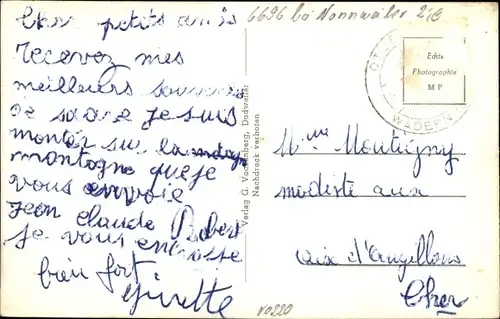 Cher petits amis
recevez mes
meilleurs souvenirs
de saare je suis
monter sur la
montagne que je
vous envoie
jean claude Robert
je vous embrasse
bien fort.
Ginette
6696 bei Nonnweiler
Verlag G. Dudweiler
Nachdruck verboten
Echte
Photographie
M P
WADERN
Mme Montigny
modiste aux
aix d'angillons
Cher
V0220